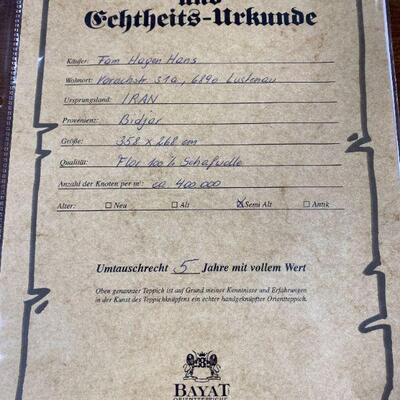 und
Echtheits-Urkunde
Käufer: Fam Hagen Hans
Wohnort: Vorachstr 31a, 6890 Lustenau
Ursprungsland: IRAN
Provenienz: Bidjar
Größe: 358 x 268 cm
Qualität: Flor 100% Schafwolle
Anzahl der Knoten per m²: ca 400 000
Alter: ☐ Neu ☐ Alt ☒ Semi Alt ☐ Antik
Umtauschrecht 5 Jahre mit vollem Wert
Oben genannter Teppich ist auf Grund meiner Kenntnisse und Erfahrungen
in der Kunst des Teppichknüpfens ein echter handgeknüpfter Orientteppich.
BAYAT
ORIENTTEPPICHE